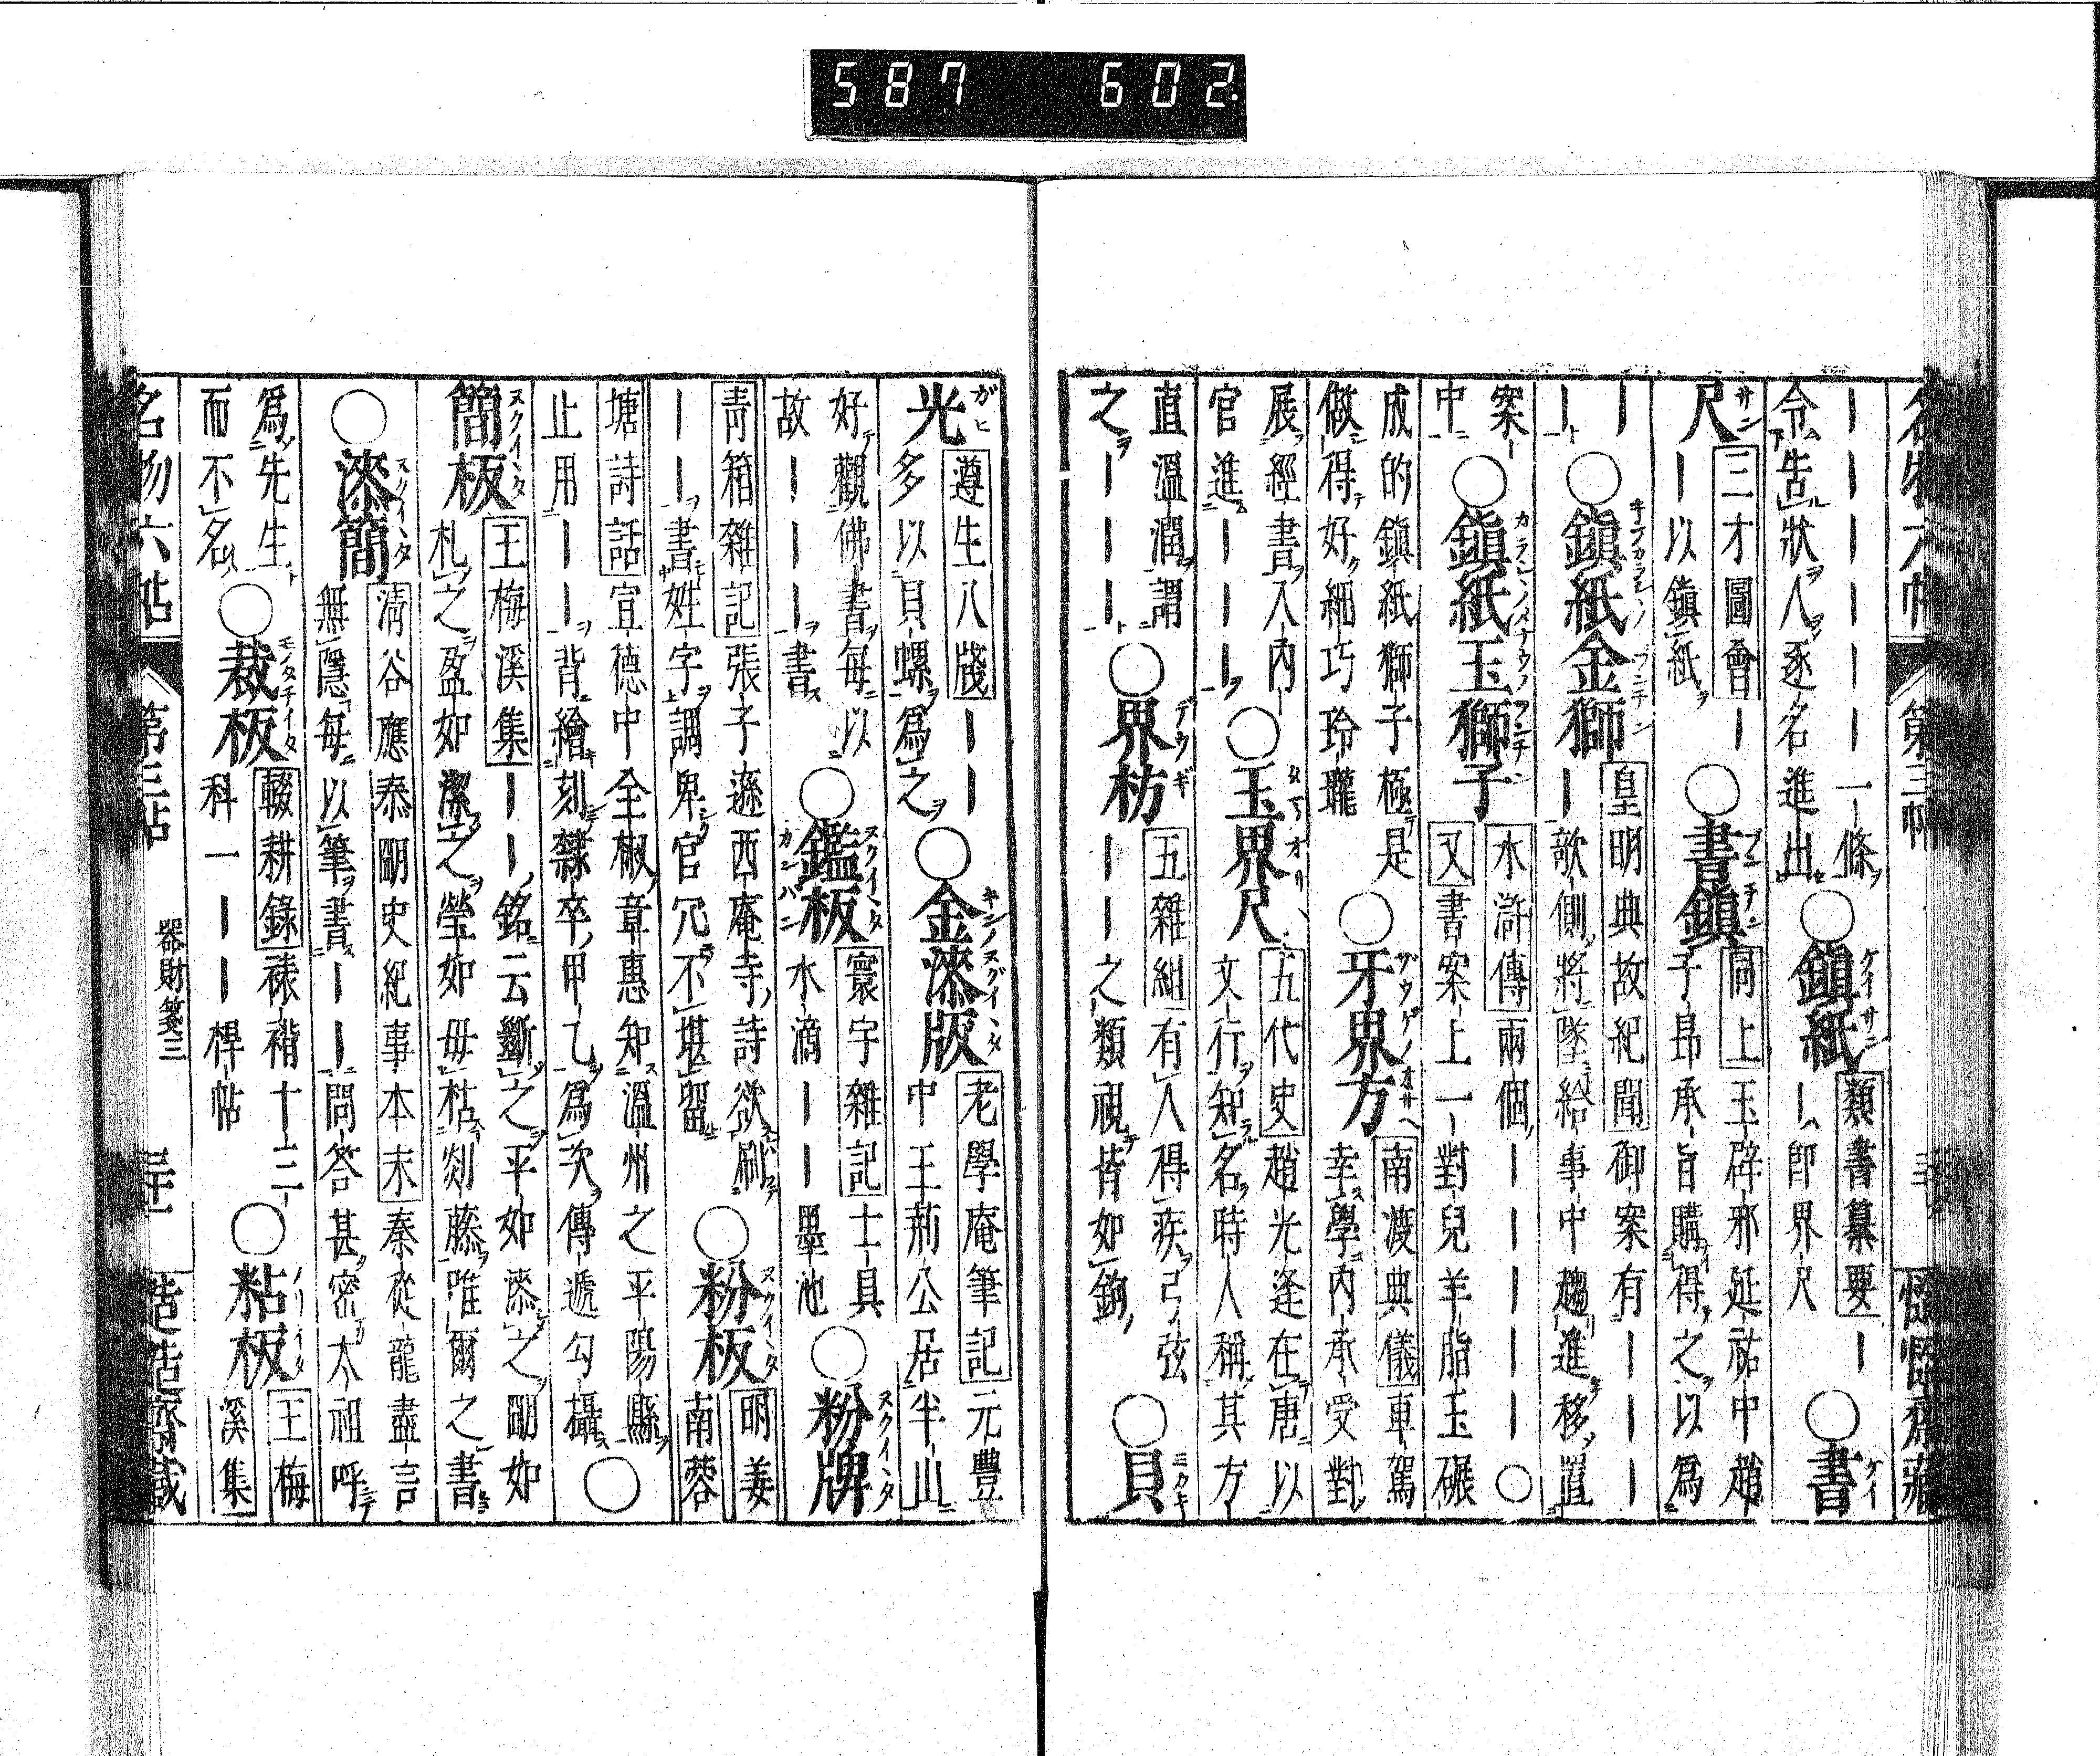 名物六帖 第三帖
｜｜｜｜｜｜一條
令告狀人逐名進出
○鎮紙 類書纂要 ｜
｜即界尺
○書
尺 三才圖會 ｜
｜以鎮紙
○書鎮 同上 玉辟邪延祐中趙
子昂承旨購得之以爲
｜
｜
○鎮紙金獅 皇明典故紀聞 御案有｜｜｜
｜欹側將墜給事中趨進移置
案
中
○鎮紙玉獅子 水滸傳 兩個｜｜｜｜○
又 書案上一對兒羊脂玉碾
成的鎮紙獅子極是
做得好細巧玲瓏
○牙界方 南渡典儀 車駕
幸學内承受對
展經書入内
官進｜｜｜
○玉界尺 五代史 趙光逢在唐以
文行知名時人稱其方
直溫潤謂
之｜｜｜
○界枋 五雜組 有人得疾弓弦
｜｜之類視皆如鉤
○貝
光 遵生八牋 ｜｜
多以貝螺爲之
○金漆版 老學庵筆記 元豐
中王荊公居半山
好觀佛書每以
故｜｜｜書
○鑑板 寰宇雜記 士具
水滴｜｜墨池
○粉牌
青箱雜記 張子遜西庵寺詩欲刷
｜｜書姓字調卑官冗不堪留
○粉板 明姜
南蓉
塘詩話 宣德中全椒章惠知溫州之平陽縣
止用｜｜背繪刻隸卒甲乙爲次傳遞勾攝
○
簡板 王梅溪集 ｜｜銘云斵之平如漆之剛如
札之盈如潔之瑩如毋枯剡藤唯爾之書
○漆簡 清谷應泰明史紀事本末 秦從龍盡言
無隱每以筆書｜｜問答甚密太祖呼
爲先生
而不名
○裁板 輟耕錄 裱褙十三
科一｜｜桿帖
○粘板 王梅
溪集
名物六帖 第三帖 器財箋三
587 602.